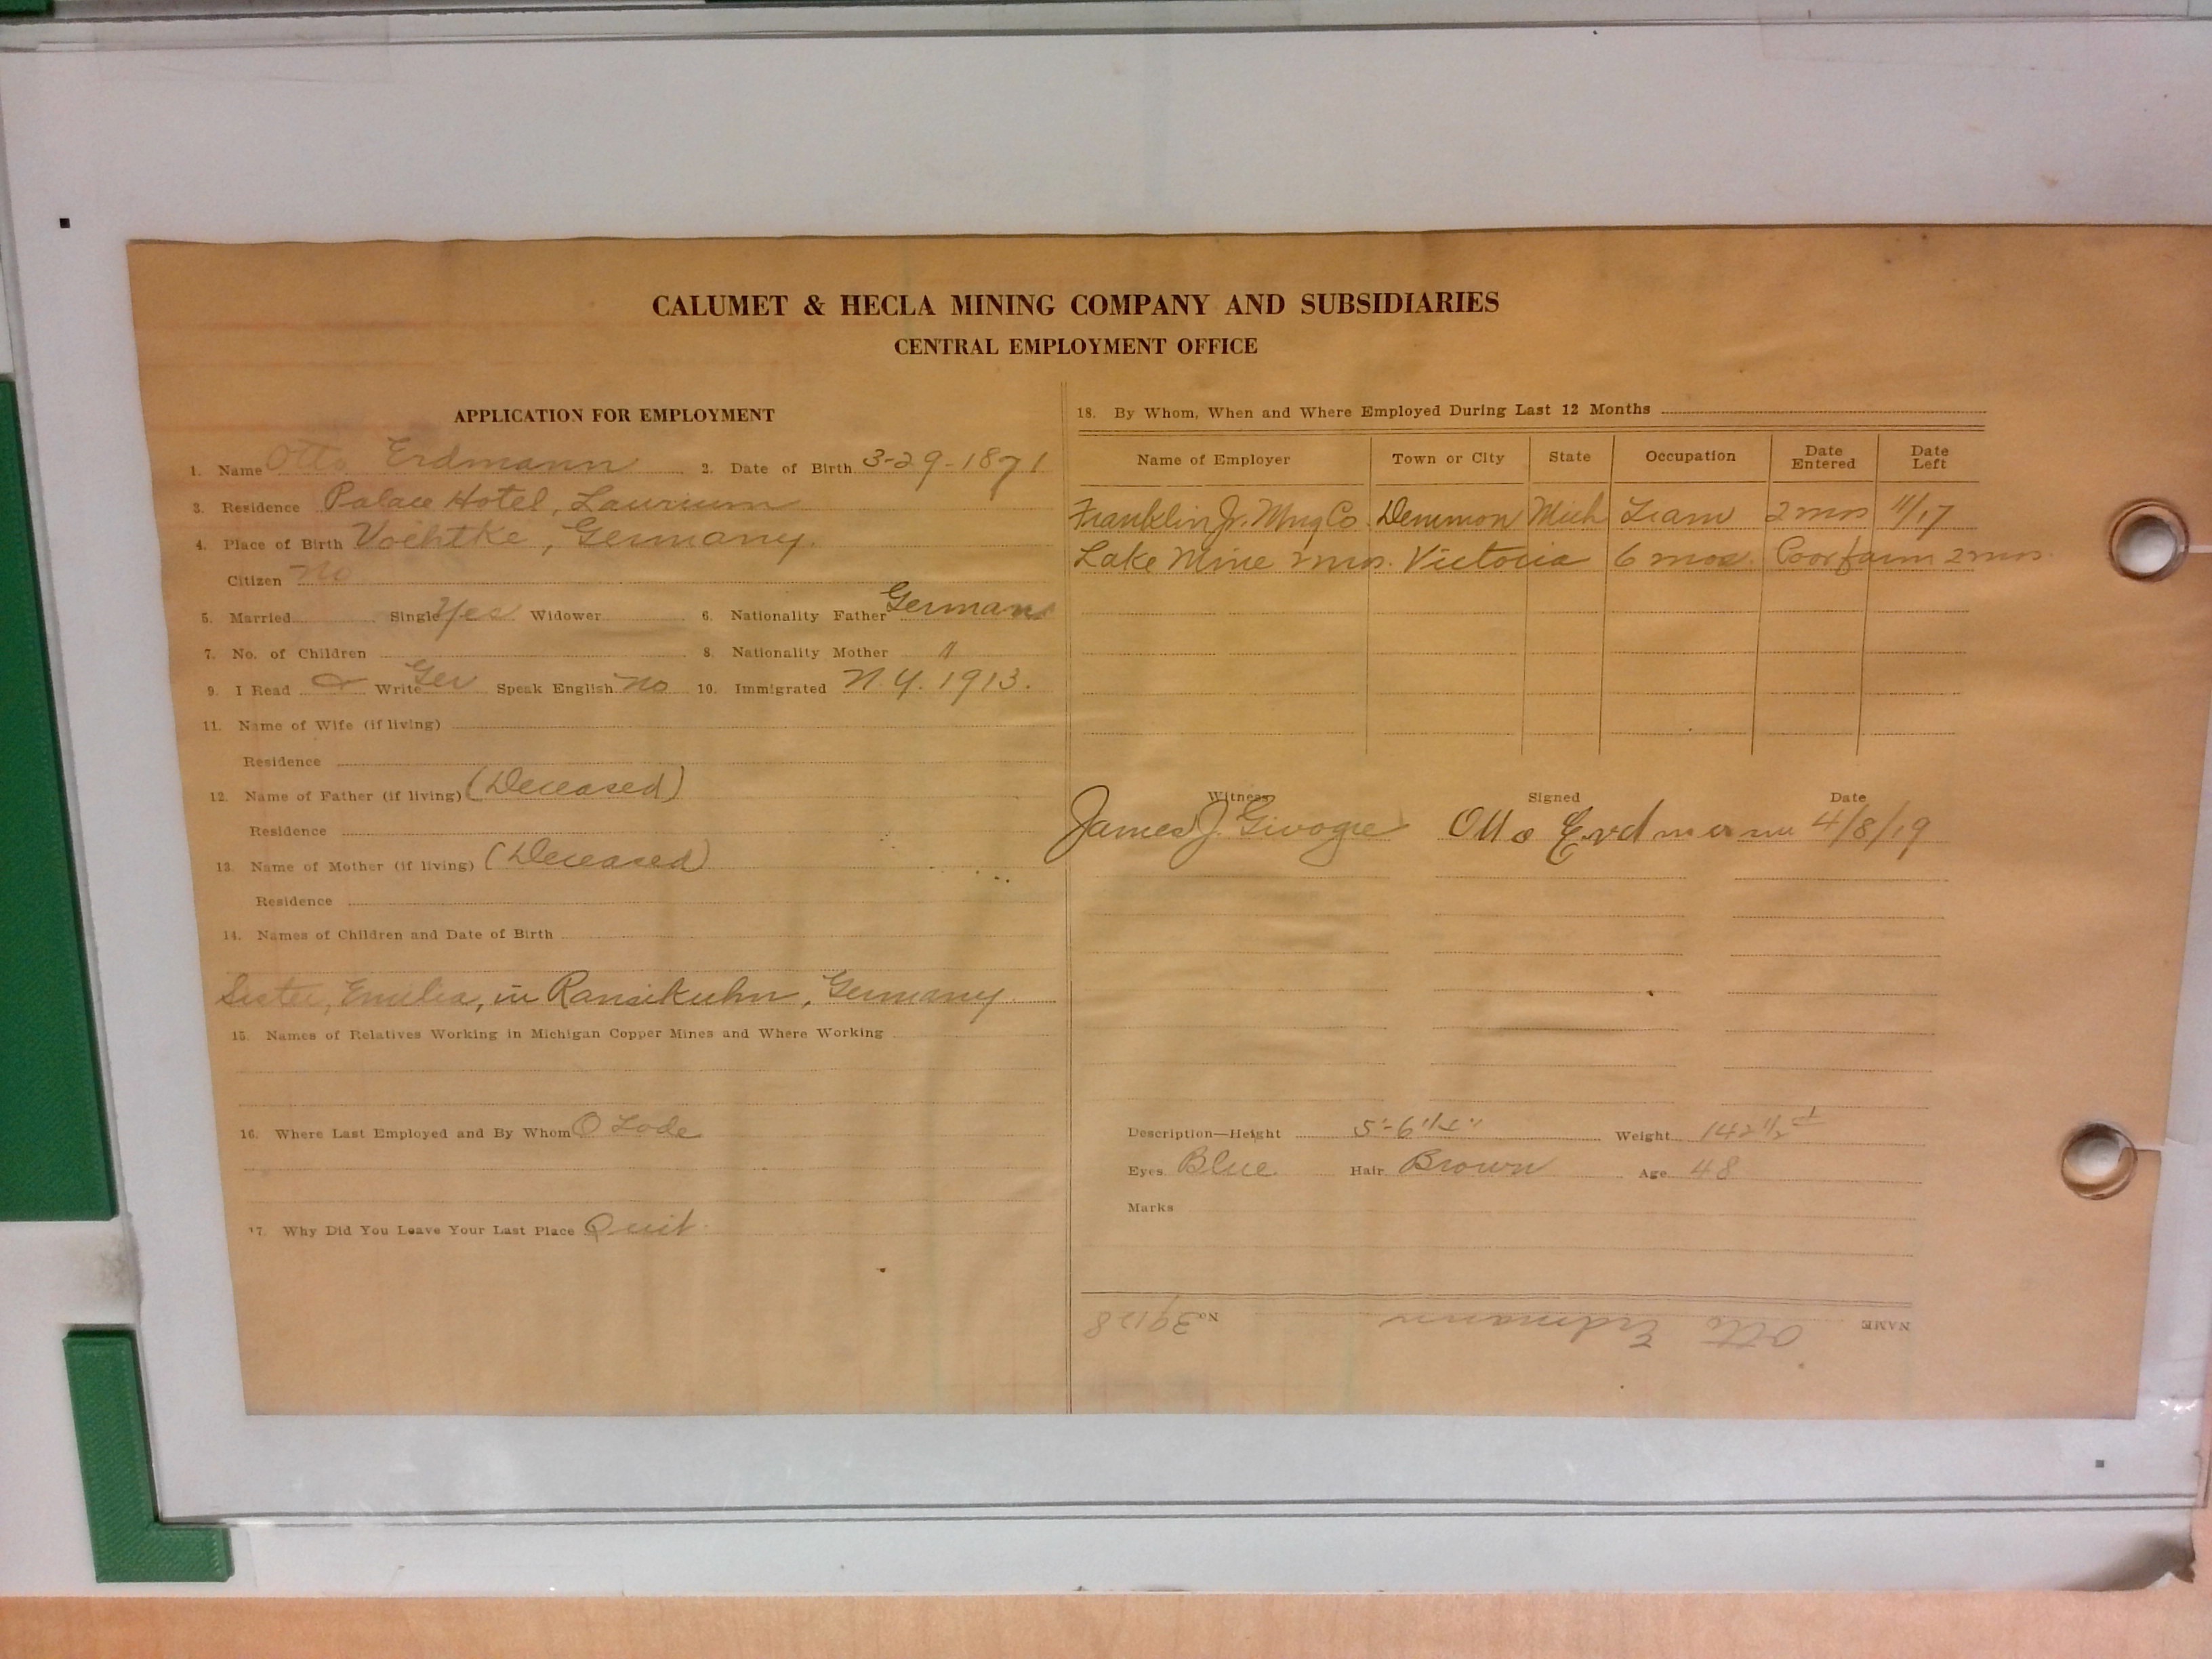 CALUMET & HECLA MINING COMPANY AND SUBSIDIARIES
CENTRAL EMPLOYMENT OFFICE
APPLICATION FOR EMPLOYMENT
1. Name Otto Erdmann 2. Date of Birth 3-29-1871
3. Residence Palace Hotel, Laurium
4. Place of Birth Voehtke, Germany.
Citizen no
5. Married Single Yes Widower 6. Nationality Father German
7. No. of Children 8. Nationality Mother "
9. I Read & Write Ger Speak English no 10. Immigrated N.Y. 1913.
11. Name of Wife (if living)
Residence
12. Name of Father (if living) (Deceased)
Residence
13. Name of Mother (if living) (Deceased)
Residence
14. Names of Children and Date of Birth
Sister, Emelia, in Germany
15. Names of Relatives Working in Michigan Copper Mines and Where Working
16. Where Last Employed and By Whom O Lode
17. Why Did You Leave Your Last Place Quit
18. By Whom, When and Where Employed During Last 12 Months
Name of Employer Town or City State Occupation Date Entered Date Left
Franklin Jr. Mng Co. Demmon Mich Tram 2 mos 11/17
Lake Mine 2 mos. Victoria 6 mos. Poor farm 2 mos
Witness Signed Date
James J. Otto Erdmann 4/8/19
Description—Height 5'-6 1/2" Weight 142 1/2
Eyes Blue Hair Brown Age 48
Marks
NAME Otto Erdmann No. 39128